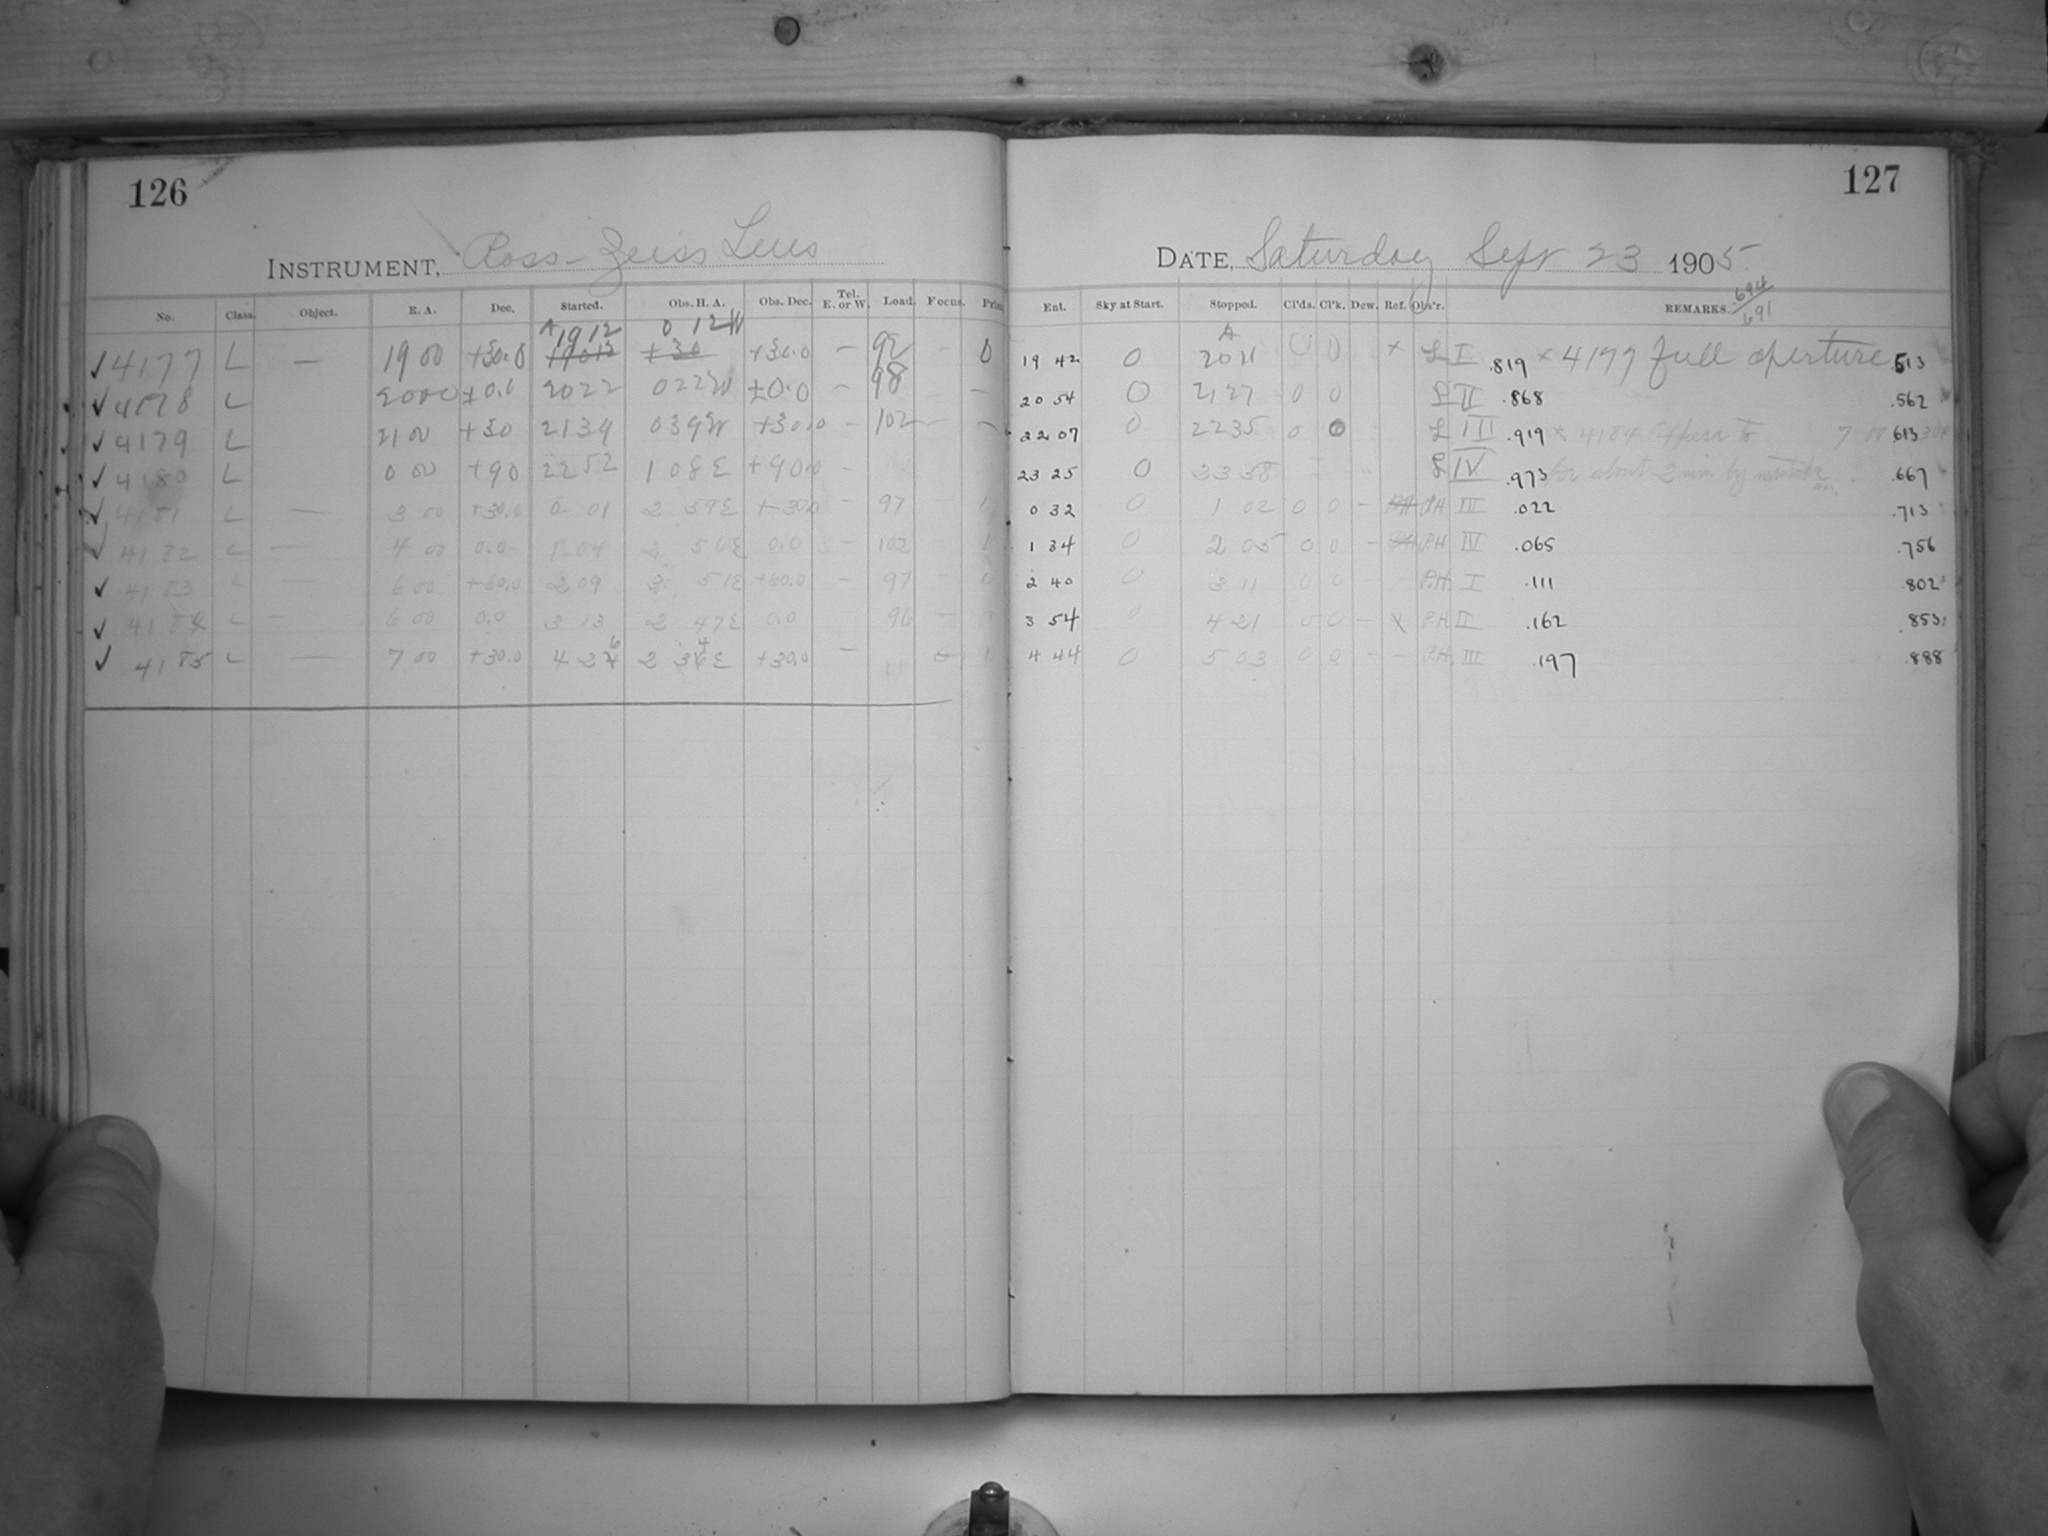 126
127
INSTRUMENT, Ross-Zeiss Lens
DATE, Saturday Sept 23 1905
.694
691
No. Class. Object. R. A. Dec. Started. Obs. H. A. Obs. Dec. Tel. E. or W. Load. Focus. Ent. Sky at Start. Stopped. Cl'ds. Cl'k. Dew. Ref. Obs'r. REMARKS.
A 19 12 0 12W A
✓4177 L — 19 00 +30.0 +30 +30.0 — 92 - 0 19 42 0 20 11 0 0 × L I .819 × 4177 full aperture .513
✓4178 L 20 00 ±0.0 20 22 0 22W ±0.0 - 98 - — 20 54 0 21 27 0 0 L II .868 .562
✓4179 L 21 00 +30 21 39 0 39W +30.0 - 102 - - 22 07 0 22 35 0 0 L III .919 × 4184 to 7 00 613
✓4180 L 0 00 +90 22 52 1 08E +90.0 23 25 0 23 38 L IV .973 for about 2 min by mistake .667
✓4181 L — 3 00 +30.0 0 01 2 59E +30.0 - 97 0 32 0 1 02 0 0 - P.H III .022 .713
✓4182 L — 4 00 0.0 1 04 2 56E 0.0 - 102 1 34 0 2 05 0 0 - P.H IV .065 .756
✓4183 L — 6 00 +60.0 2 09 3 51E +60.0 - 97 2 40 0 3 11 0 0 P.H. I .111 .802
✓4184 L — 6 00 0.0 3 13 2 47E 0.0 - 96 - 3 54 0 4 21 0 0 - × P.H II .162 .853
✓4185 L — 7 00 +30.0 4 26 2 34E +30.0 - 4 44 0 5 03 0 0 - - P.H. III .197 .888